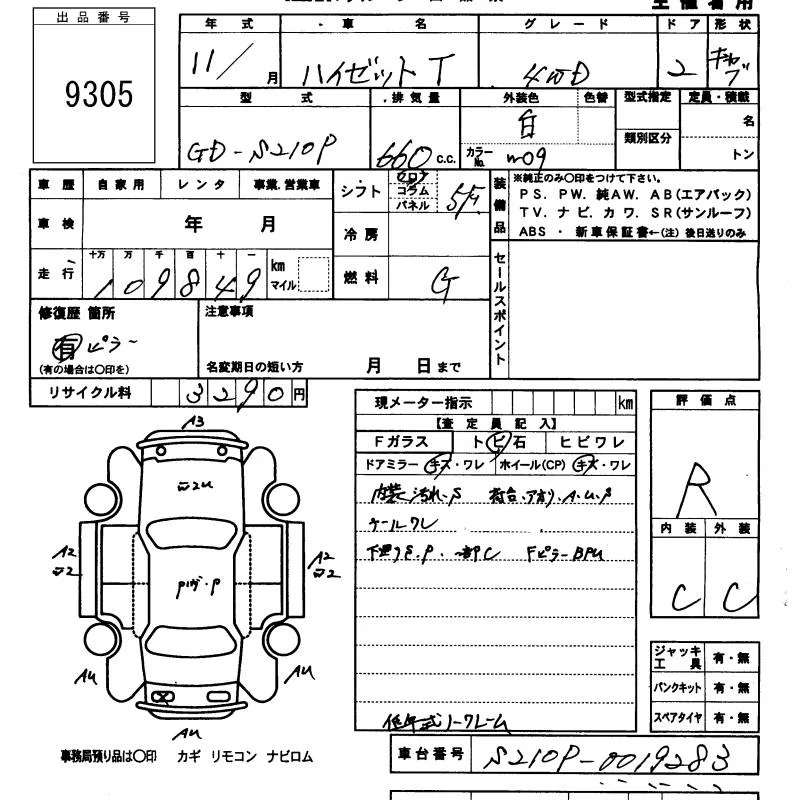 出品番号
9305
年式 ・車名 グレード ドア 形状
11/ 月 ハイゼットT 4WD 2
型式 ・排気量 外装色 色替 型式指定 定員・積載
GD-S210P 660 c.c. 白 カラーNo. W09 類別区分 名
トン
車歴 自家用 レンタ 事業.営業車
シフト フロア コラム パネル 5F
車検 年 月
冷房
走行 十万 万 千 百 十 一
109849 km マイル
燃料 G
装備品
※純正のみ〇印をつけて下さい。
PS. PW. 純AW. AB(エアバック)
TV. ナビ. カワ. SR(サンルーフ)
ABS ・ 新車保証書←(注) 後日送りのみ
セールスポイント
修復歴 箇所 注意事項
有 ピラー
(有の場合は〇印を) 名変期日の短い方 月 日まで
リサイクル料 3290円
現メーター指示 km
【査定員記入】
Fガラス トビ石 ヒビワレ
ドアミラー キズ・ワレ ホイール(CP) キズ・ワレ
内装汚れ.S 荷台.アオリ.A.U.P
下廻りS.P.一部C FピラーBPU
低年式ノークレーム
評価点
R
内装 外装
C C
ジャッキ工具 有・無
パンクキット 有・無
スペアタイヤ 有・無
A3
A2
A2
AU
AU
AU
事務局預り品は〇印 カギ リモコン ナビロム
車台番号 S210P-0019283